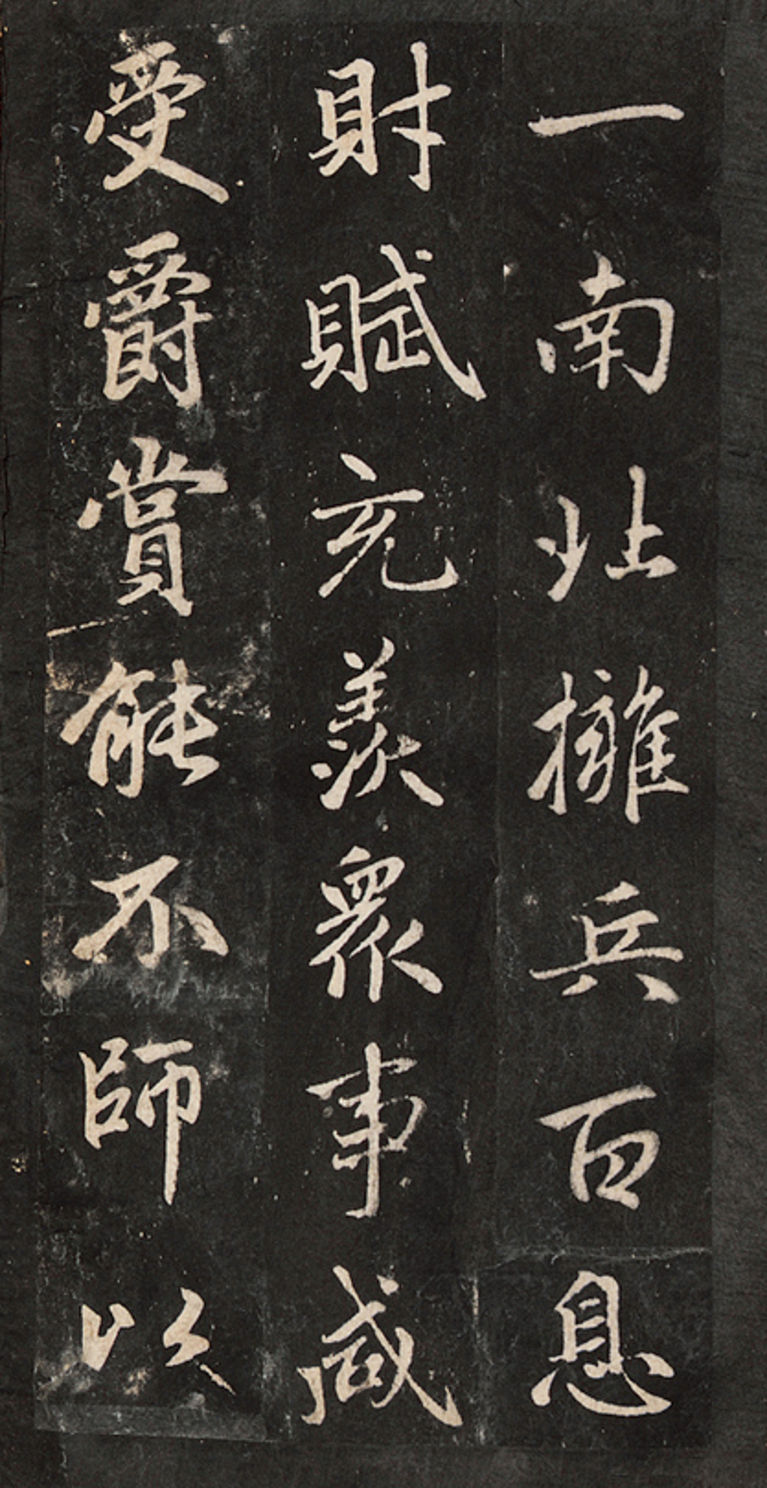 一南北擁兵百息
財賦充羨衆事咸
受爵賞能不師以